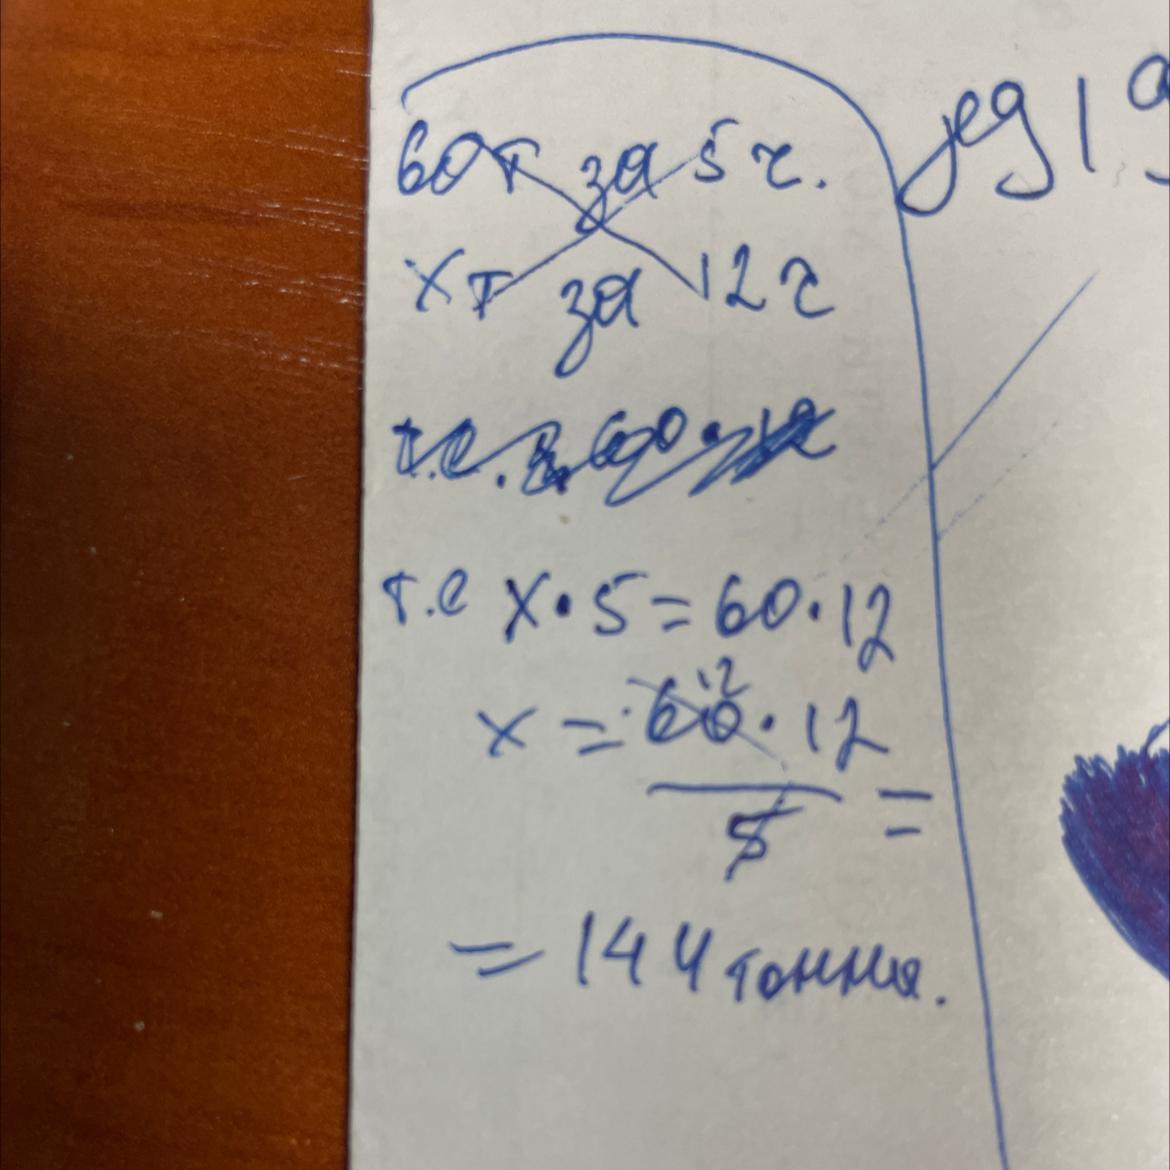 60т за 5 ч.
хт за 12 ч
т.е х • 5 = 60 • 12
12
х = 60 • 12
5
=
= 144 тонны.